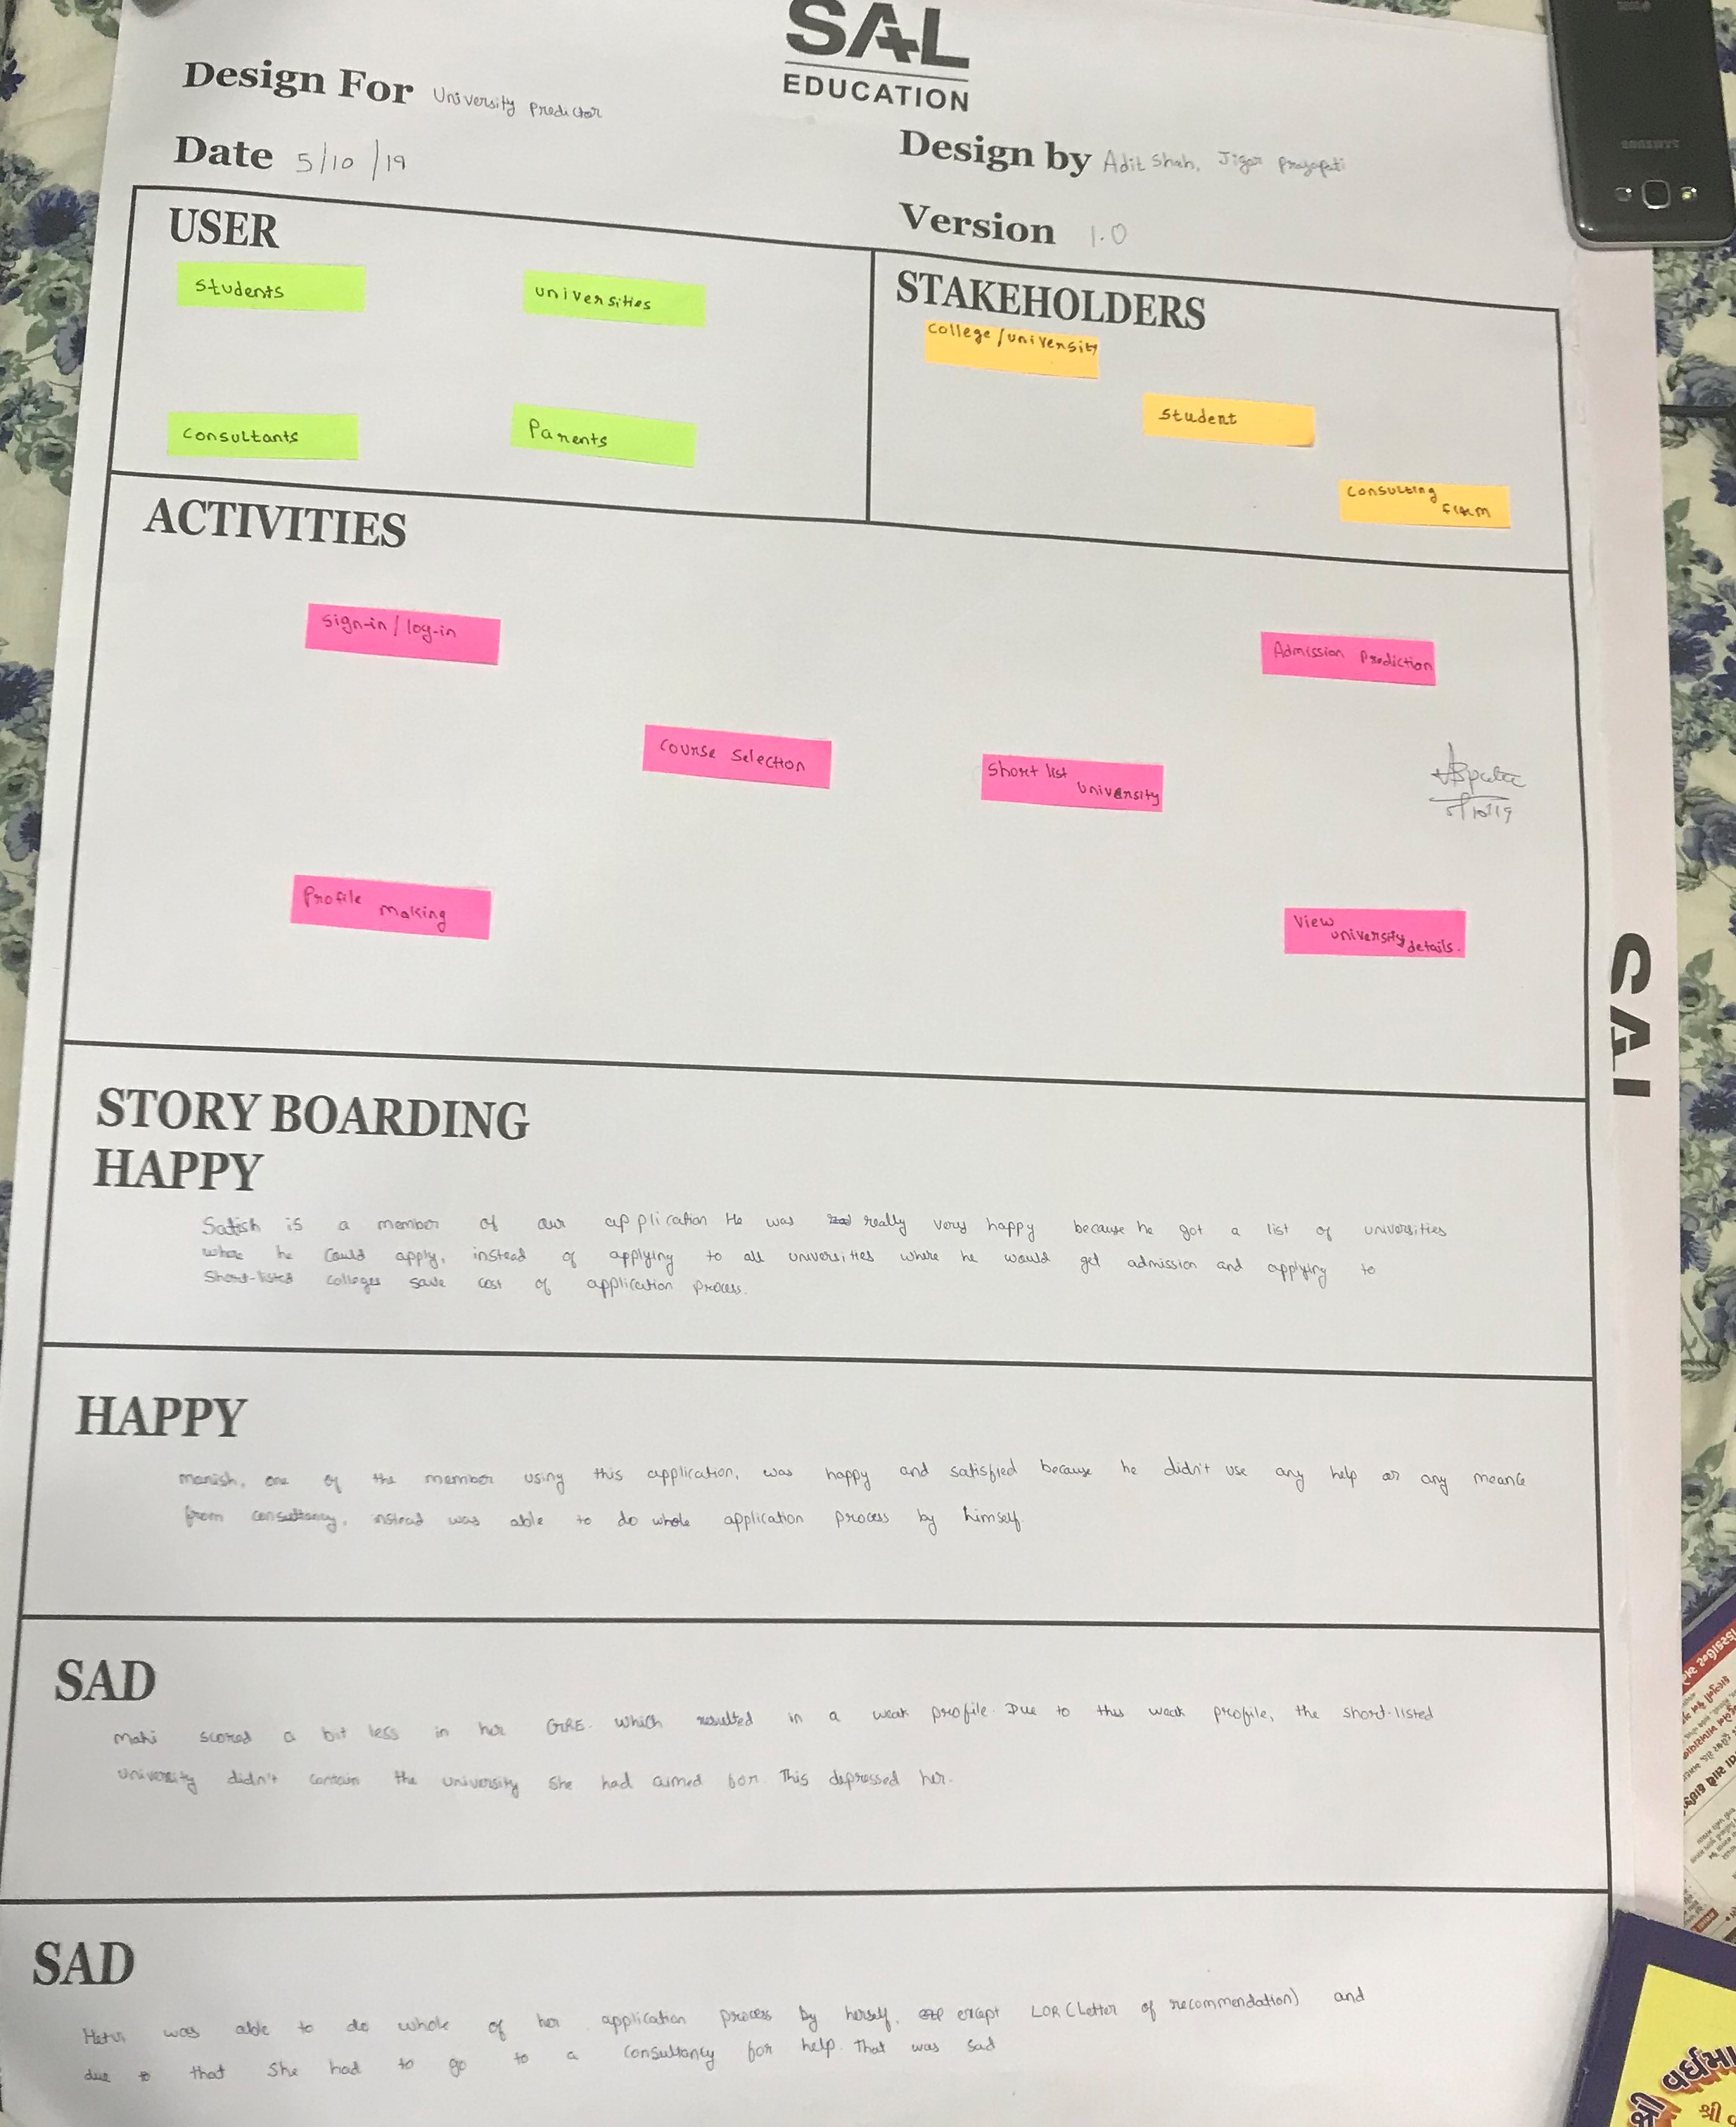 SAL
EDUCATION
Design For University Predictor
Date 5/10/19
Design by Adit Shah, Jigar Prajapati
Version 1.0
USER
Students
universities
Consultants
Parents
STAKEHOLDERS
College/university
Student
Consulting
firm
ACTIVITIES
Sign-in/log-in
Admission Prediction
Course Selection
Short list
university
5/10/19
Profile
Making
View
university
details.
STORY BOARDING
HAPPY
Satish is a member of our application He was really very happy because he got a list of universities
where he could apply, instead of applying to all universities where he would get admission and applying to
Short-listed colleges save cost of application process.
HAPPY
Manish, one of the member using this application, was happy and satisfied because he didn't use any help or any means
from consultancy, instead was able to do whole application process by himself
SAD
Mahi scored a bit less in her GRE. which resulted in a weak profile. Due to this weak profile, the short-listed
University didn't contain the university she had aimed for. This depressed her.
SAD
Hetvi was able to do whole of her application process by herself. except LOR (Letter of recommendation) and
due to that she had to go to a consultancy for help. That was sad
SAL
SAMSUNG
શ્રી વર્ધમા
શ્રી